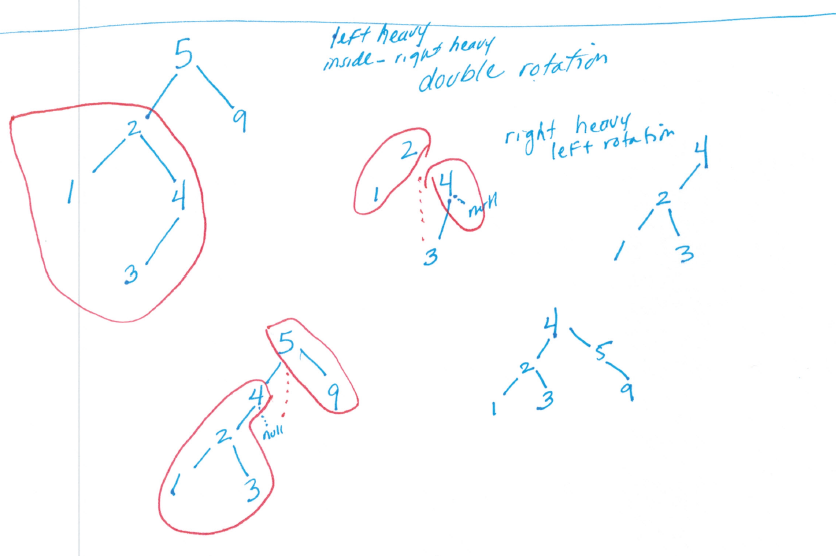 left heavy
inside - right heavy
double rotation
5
2
9
1
4
3
2
1
4
null
3
right heavy
left rotation
4
2
1
3
5
4
9
2
null
1
3
4
2
5
1
3
9